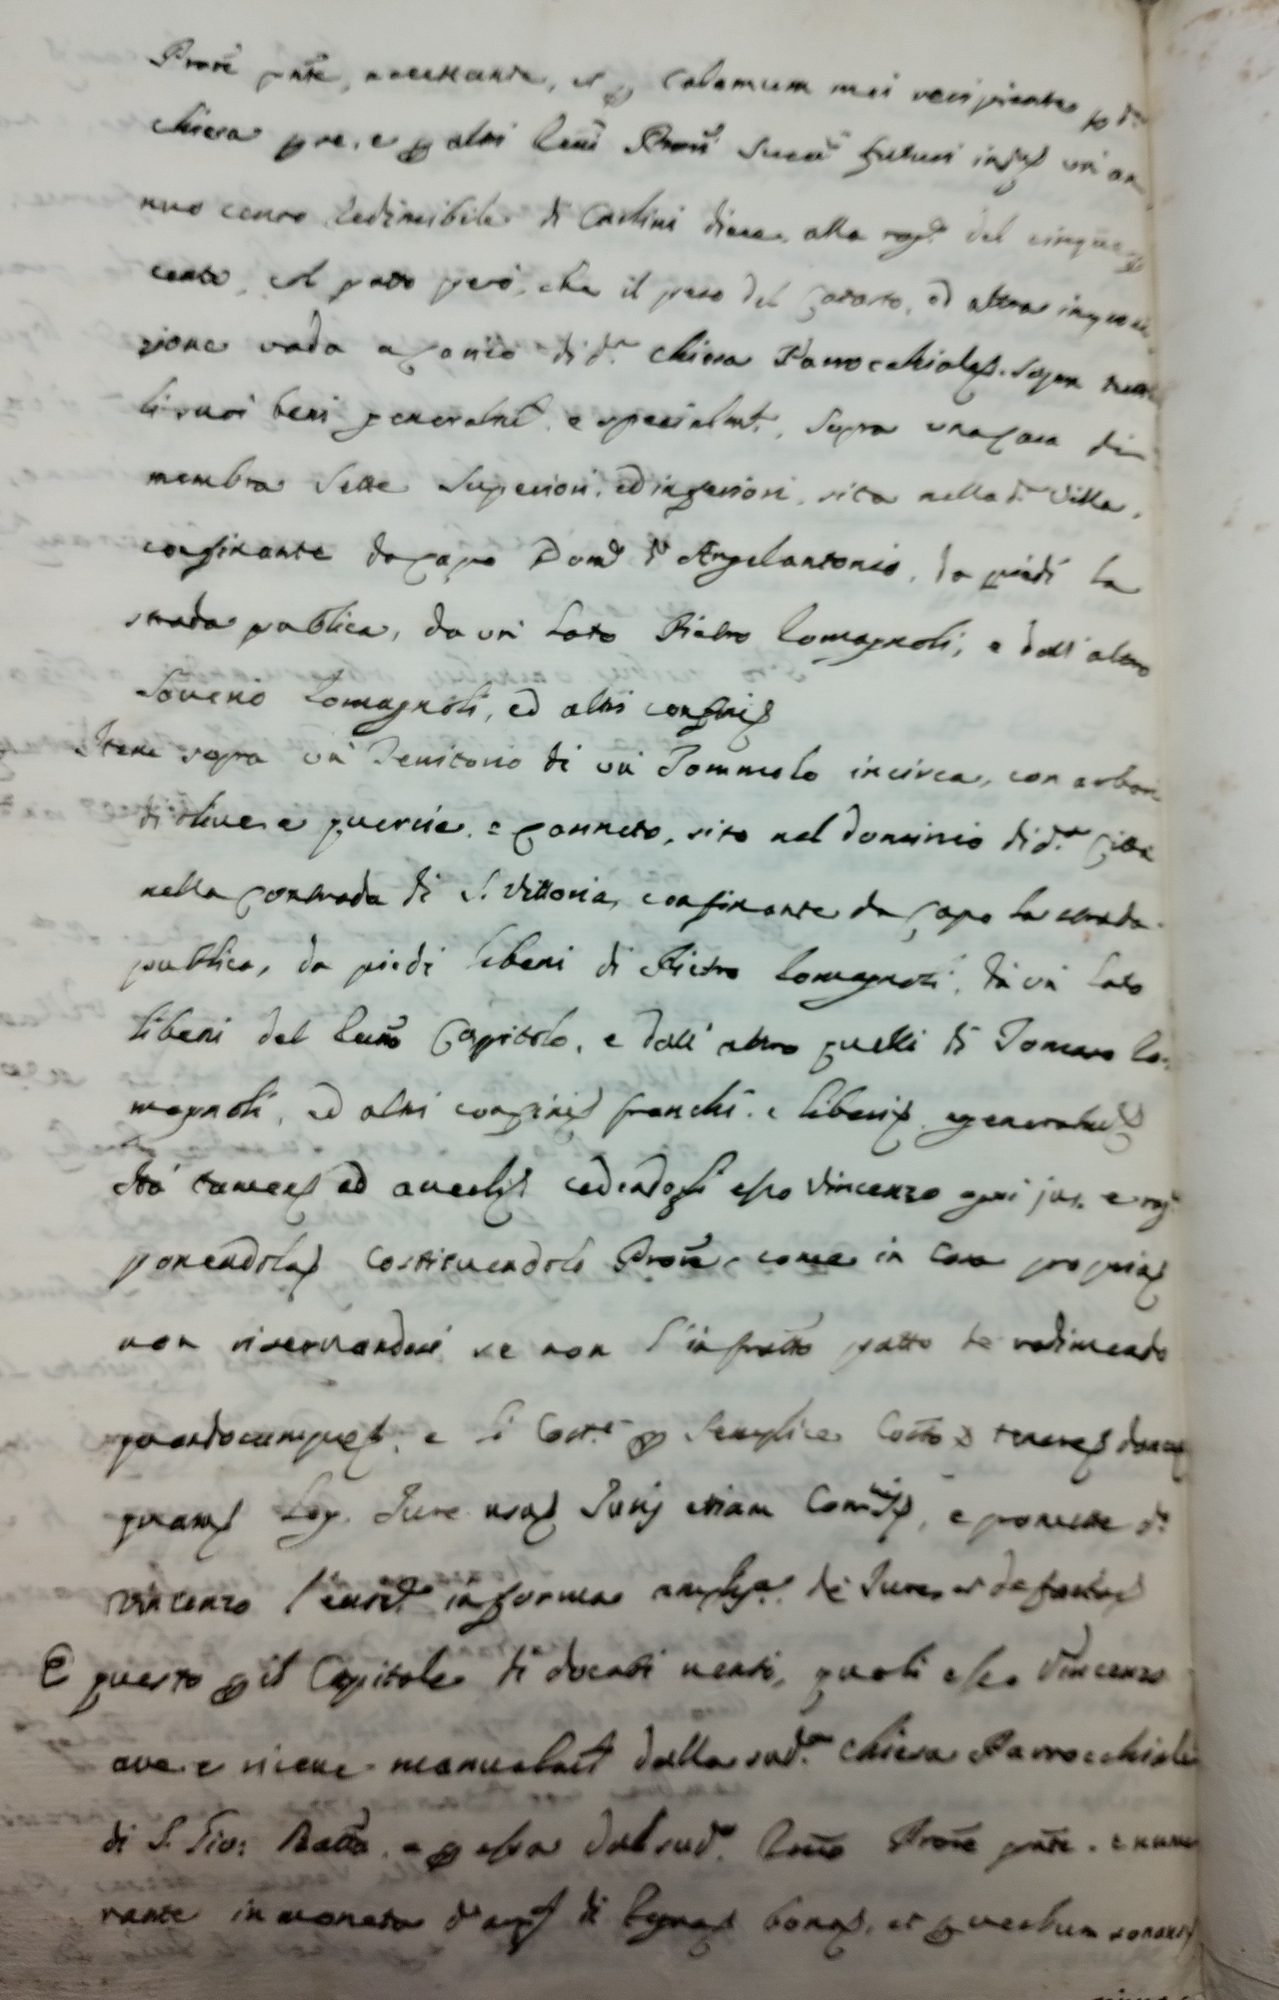 Pror̃e pñte, accettante, et p Calamum mei recipiente p d.ª
Chiesa pre, e p altri Reũi Pror̃i Succẽ futuri in ppm un an
nuo censo Redimibile di Carlini diece, alla rag.e del cinque p
cento, col patto però, che il peso del Catasto, ed altra imposi
zione vada a carico di d.ª Chiesa Parrocchiale. Sopra tutti
li suoi beni generalmt. e specialmt. Sopra una Casa di
membra Sette Superiori, ed inferiori, sita nella d.ª Villa,
confinante da capo Dom.co d'Angelantonio, da piedi la
strada publica, da un lato Pietro Romagnoli, e dall'altro
Saverio Romagnoli, ed altri confini
Item sopra un Territorio di un Tommolo incirca, con arbori
di olive e quercie, e Canneto, sito nel dominio di d.ª Città
nella Contrada di S. Vittoria, confinante da Capo la strada
publica, da piedi li beni di Pietro Romagnoli, da un lato
li beni del Reũo Capitolo, e dall'altro quelli di Tomaso Ro-
magnoli, ed altri confini franchi, e liberi, e generalmt.
Ita tamen ad avedi cedendogli esso Vincenzo ogni jus, e rag.
ponendola, Costituendolo Pror̃e, come in Cosa propria
non riservandosi se non l'infrãtto patto de redimendo
quandocumque, e li Cost.e p semplice Costo tenere donec
quam Leg. Jure usq Juris etiam Com.is, e promette d.º
Vincenzo l'evid.e in forma ampliss. de Jure, et de facto
E questo p il Capitale di ducati venti, quali esso Vincenzo
ave e riceve manualmt. dalla sud.ª Chiesa Parrocchiale
di S. Gio: Batta, e p essa dal sud.º Reũo Pror̃e pñte, e nume
rante in moneta d'arg.to di Regno bona, et p vechum sonans